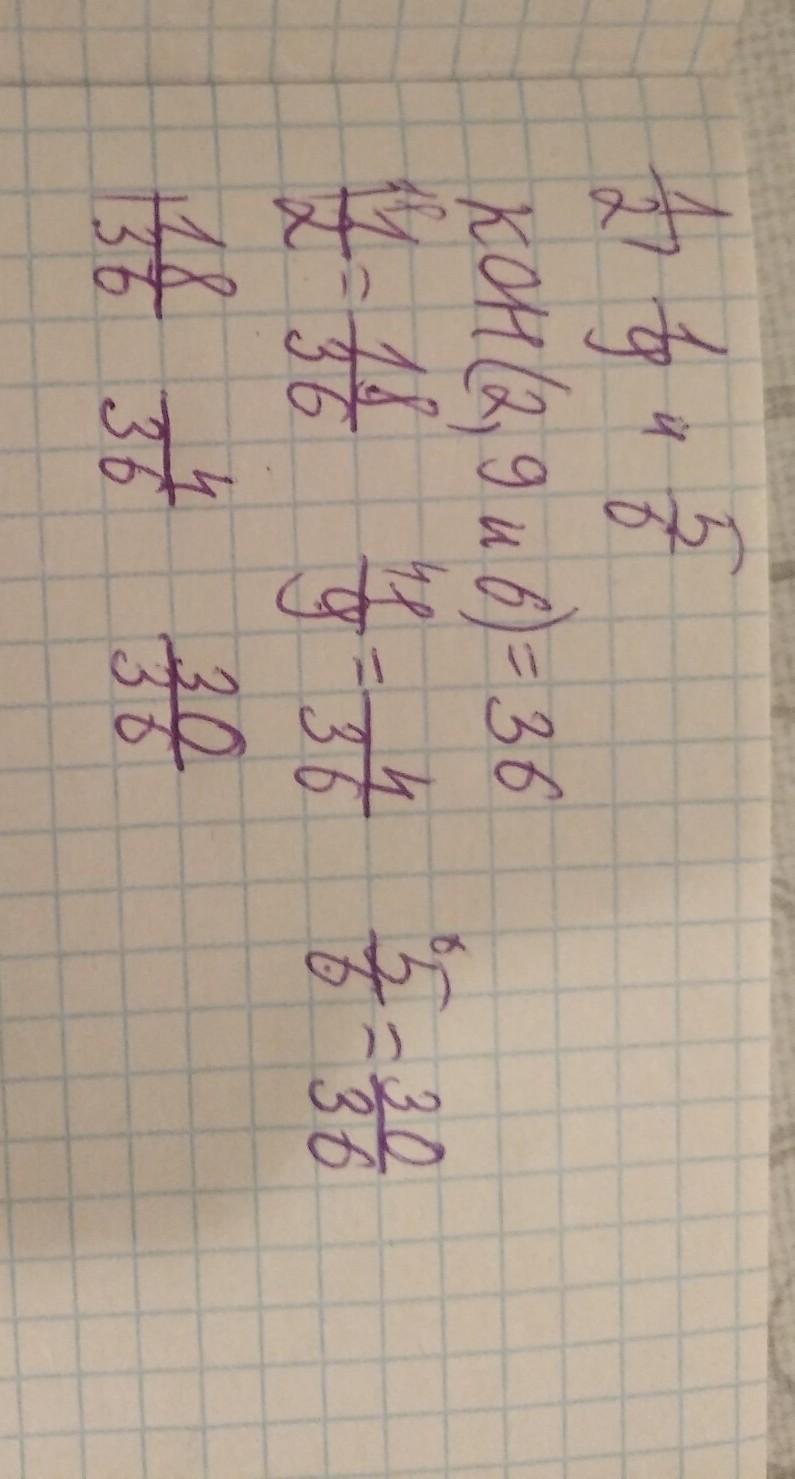 1/2, 1/9 и 5/6
КОН(2, 9 и 6) = 36
18 1/2 = 18/36 4 1/9 = 4/36 6 5/6 = 30/36
18/36 4/36 30/36